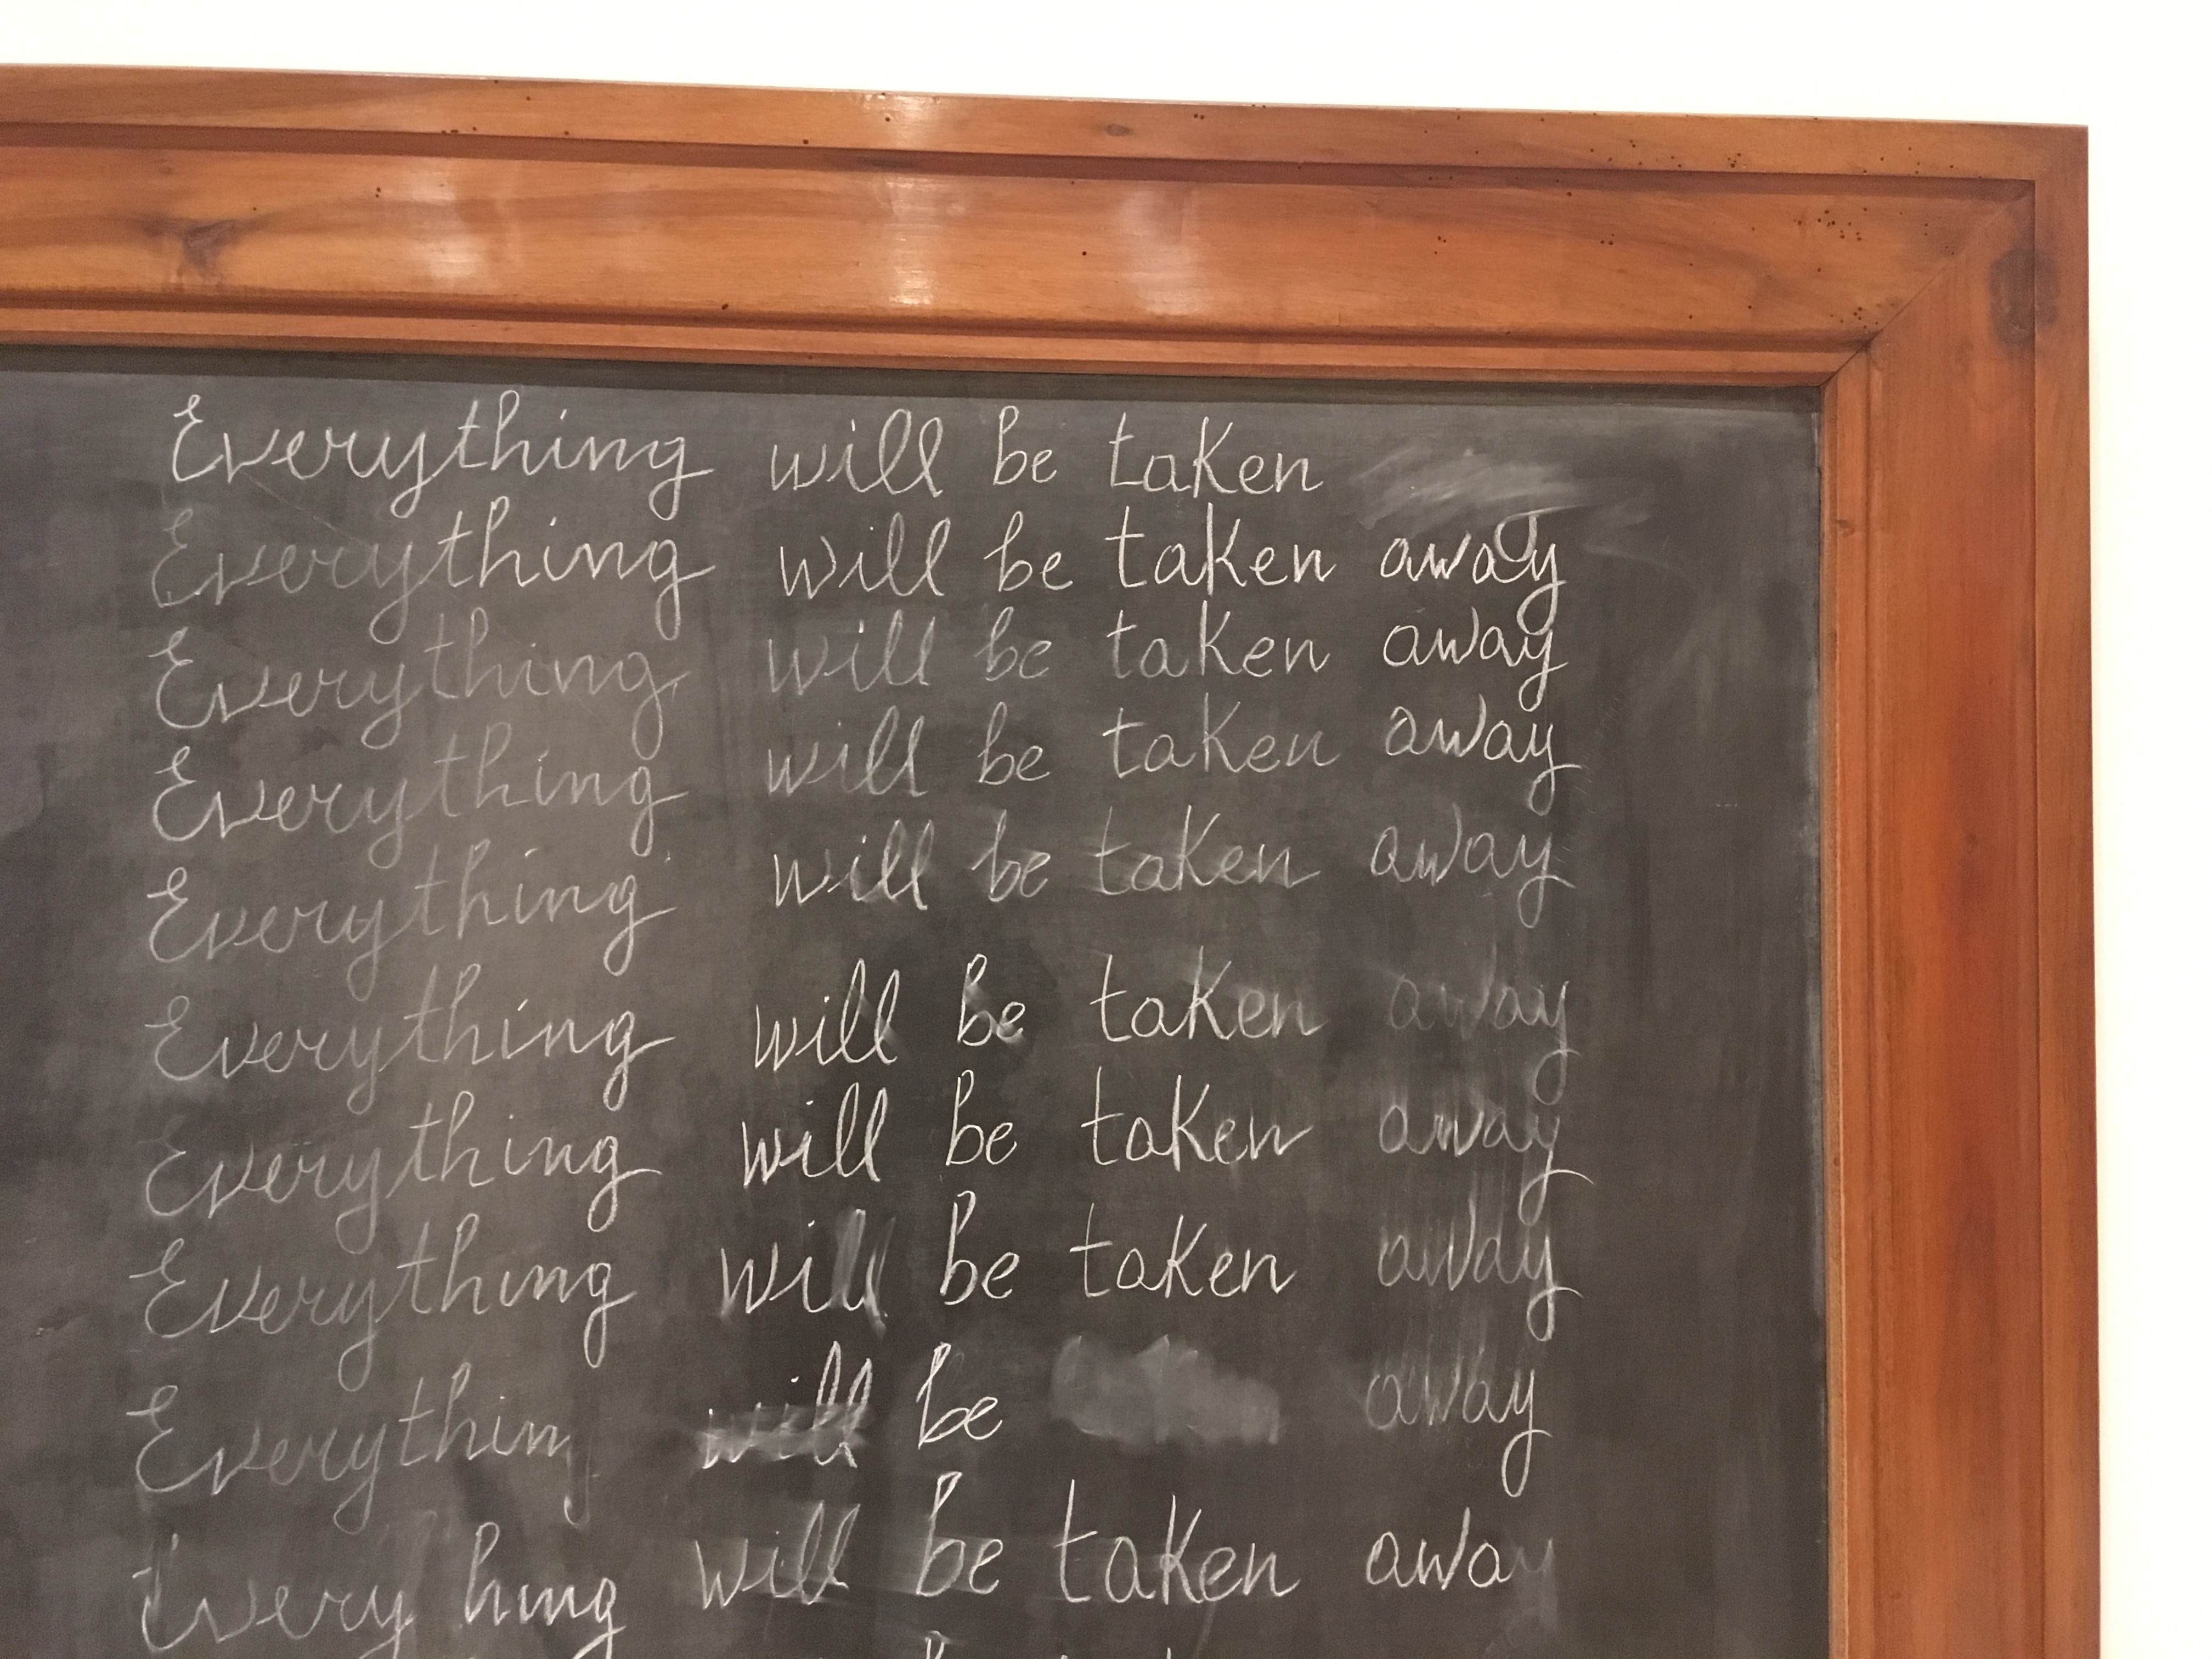 Everything will be taken
Everything will be taken away
Everything will be taken away
Everything will be taken away
Everything will be taken away
Everything will be taken away
Everything will be taken away
Everything will be taken away
Everythin will be away
Every hing will be taken away